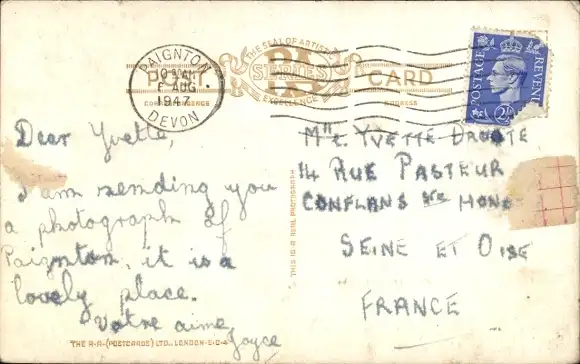 THE SEAL OF ARTISTIC
EXCELLENCE
POST CARD
CORRESPONDENCE ADDRESS
PAIGNTON
AUG
1947
DEVON
POSTAGE REVENUE
2½
Dear Yvette,
I am sending you
a photograph of
Paignton, it is a
lovely place.
Votre aimée
Joyce
THIS IS A REAL PHOTOGRAPH
Mlle. YVETTE
14 RUE PASTEUR
CONFLANS Ste HONO
SEINE ET OISE
FRANCE
THE R.A. (POSTCARDS) LTD., LONDON-E.C.4